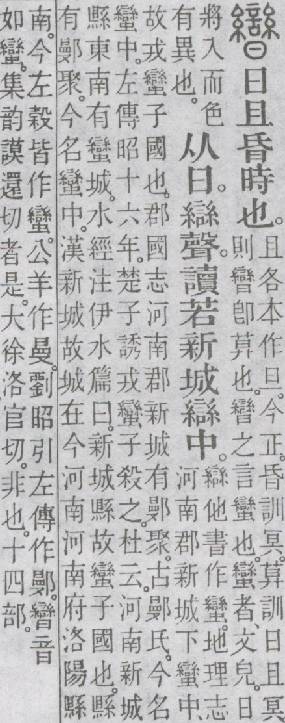 㬫日且昏時也。
且各本作旦。今正。昏訓冥。𦱤訓日且冥
則㬫卽𦱤也。㬫之言蠻也。蠻者、文皃。日
將入而色
有異也。
从日。䜌聲。讀若新城䜌中。
䜌他書作蠻。地理志
河南郡新城下蠻中、
故戎蠻子國也。郡國志河南郡新城有鄤聚。古鄤氏。今名
蠻中。左傳昭十六年。楚子誘戎蠻子殺之。杜云。河南新城
縣東南有蠻城。水經注伊水篇曰。新城縣故蠻子國也。縣
有鄤聚。今名蠻中。漢新城故城在今河南河南府洛陽縣
南。今左穀皆作蠻。公羊作曼。劉昭引左傳作鄤。㬫音
如蠻。集韵謨還切者是。大徐洛官切。非也。十四部。